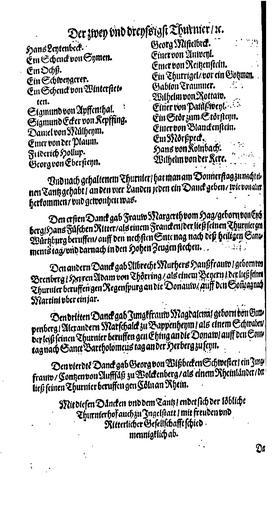 Der zwey vnd dreyssigst Thurnier/ ıc.
Hans Leytenbeck.
Ein Schenck von Symen.
Ein Ochß.
Ein Schwengerer.
Ein Schenck von Wintersteten.
Sigmund von Apffenthal.
Sigmund Ecker von Kepffing.
Daniel von Mülheym.
Einer von der Plaum.
Friderich Hollup.
Georg von Ebersteyn.
Georg Mistelbeck.
Einer von Anweyl.
Einer von Reitzenstein.
Ein Thurrigel/ vor ein Gotzman.
Gabion Traummer.
Wilhelm von Rottaw.
Einer von Paulsweyl.
Ein Stör zum Störsteyn.
Einer von Blanckenstein.
Ein Mörspeck.
Hans von Kolnbach.
Wilhelm von der Kere.
Vnd nach gehaltenem Thurnier/ hat man am Donnerstag zu nacht einen
Tantz gehabt/ an den vier Landen jeden ein Danck geben/ wie von alter
herkommen/ vnd gewonheit was.
Den ersten Danck gab Fraw Margreth vom Hag/ geborn von
berg/ Hans Füchsen Ritter/ als einem Francken/ der ließ seinen Thurnier gen
Würtzburg beruffen/ auff den nechsten Sontag nach deß heiligen
mens tag/ vnd darnach in den Hohen Zeugen stechen.
Den andern Danck gab Albrecht Murhers Haußfraw/ geborn von
Brenberg/ Herren Adam von Thörring/ als einem Beyern/ der ließ seinen
Thurnier beruffen gen Regenspurg an die Donauw/ auff den Sontag nach
Martini vber ein jar.
Den dritten Danck gab Jungkfrauw Magdalena/ geborn von Gum-
penberg/ Alexandern Marschalck zu Bappenheym/ als einem Schwaben/
der ließ seinen Thurnier beruffen gen Ehing an die Donauw/ auff den Son-
tag nach Sanct Bartholomeus tag an der Herberg zu seyn.
Den vierdte Danck gab Georg von Wißbecken Schwester/ ein Jung-
frauw/ Contzen von Auffsäß zu Wolckenberg/ als einem Rheinländer/ der
ließ seinen Thurnier beruffen gen Cölln am Rhein.
Mit diesen Däncken vnd dem Tantz/ endet sich der löbliche
Thurnierhof auch zu Ingelstatt/ mit freuden vnd
Ritterlicher Gesellschafft schied
menniglich ab.